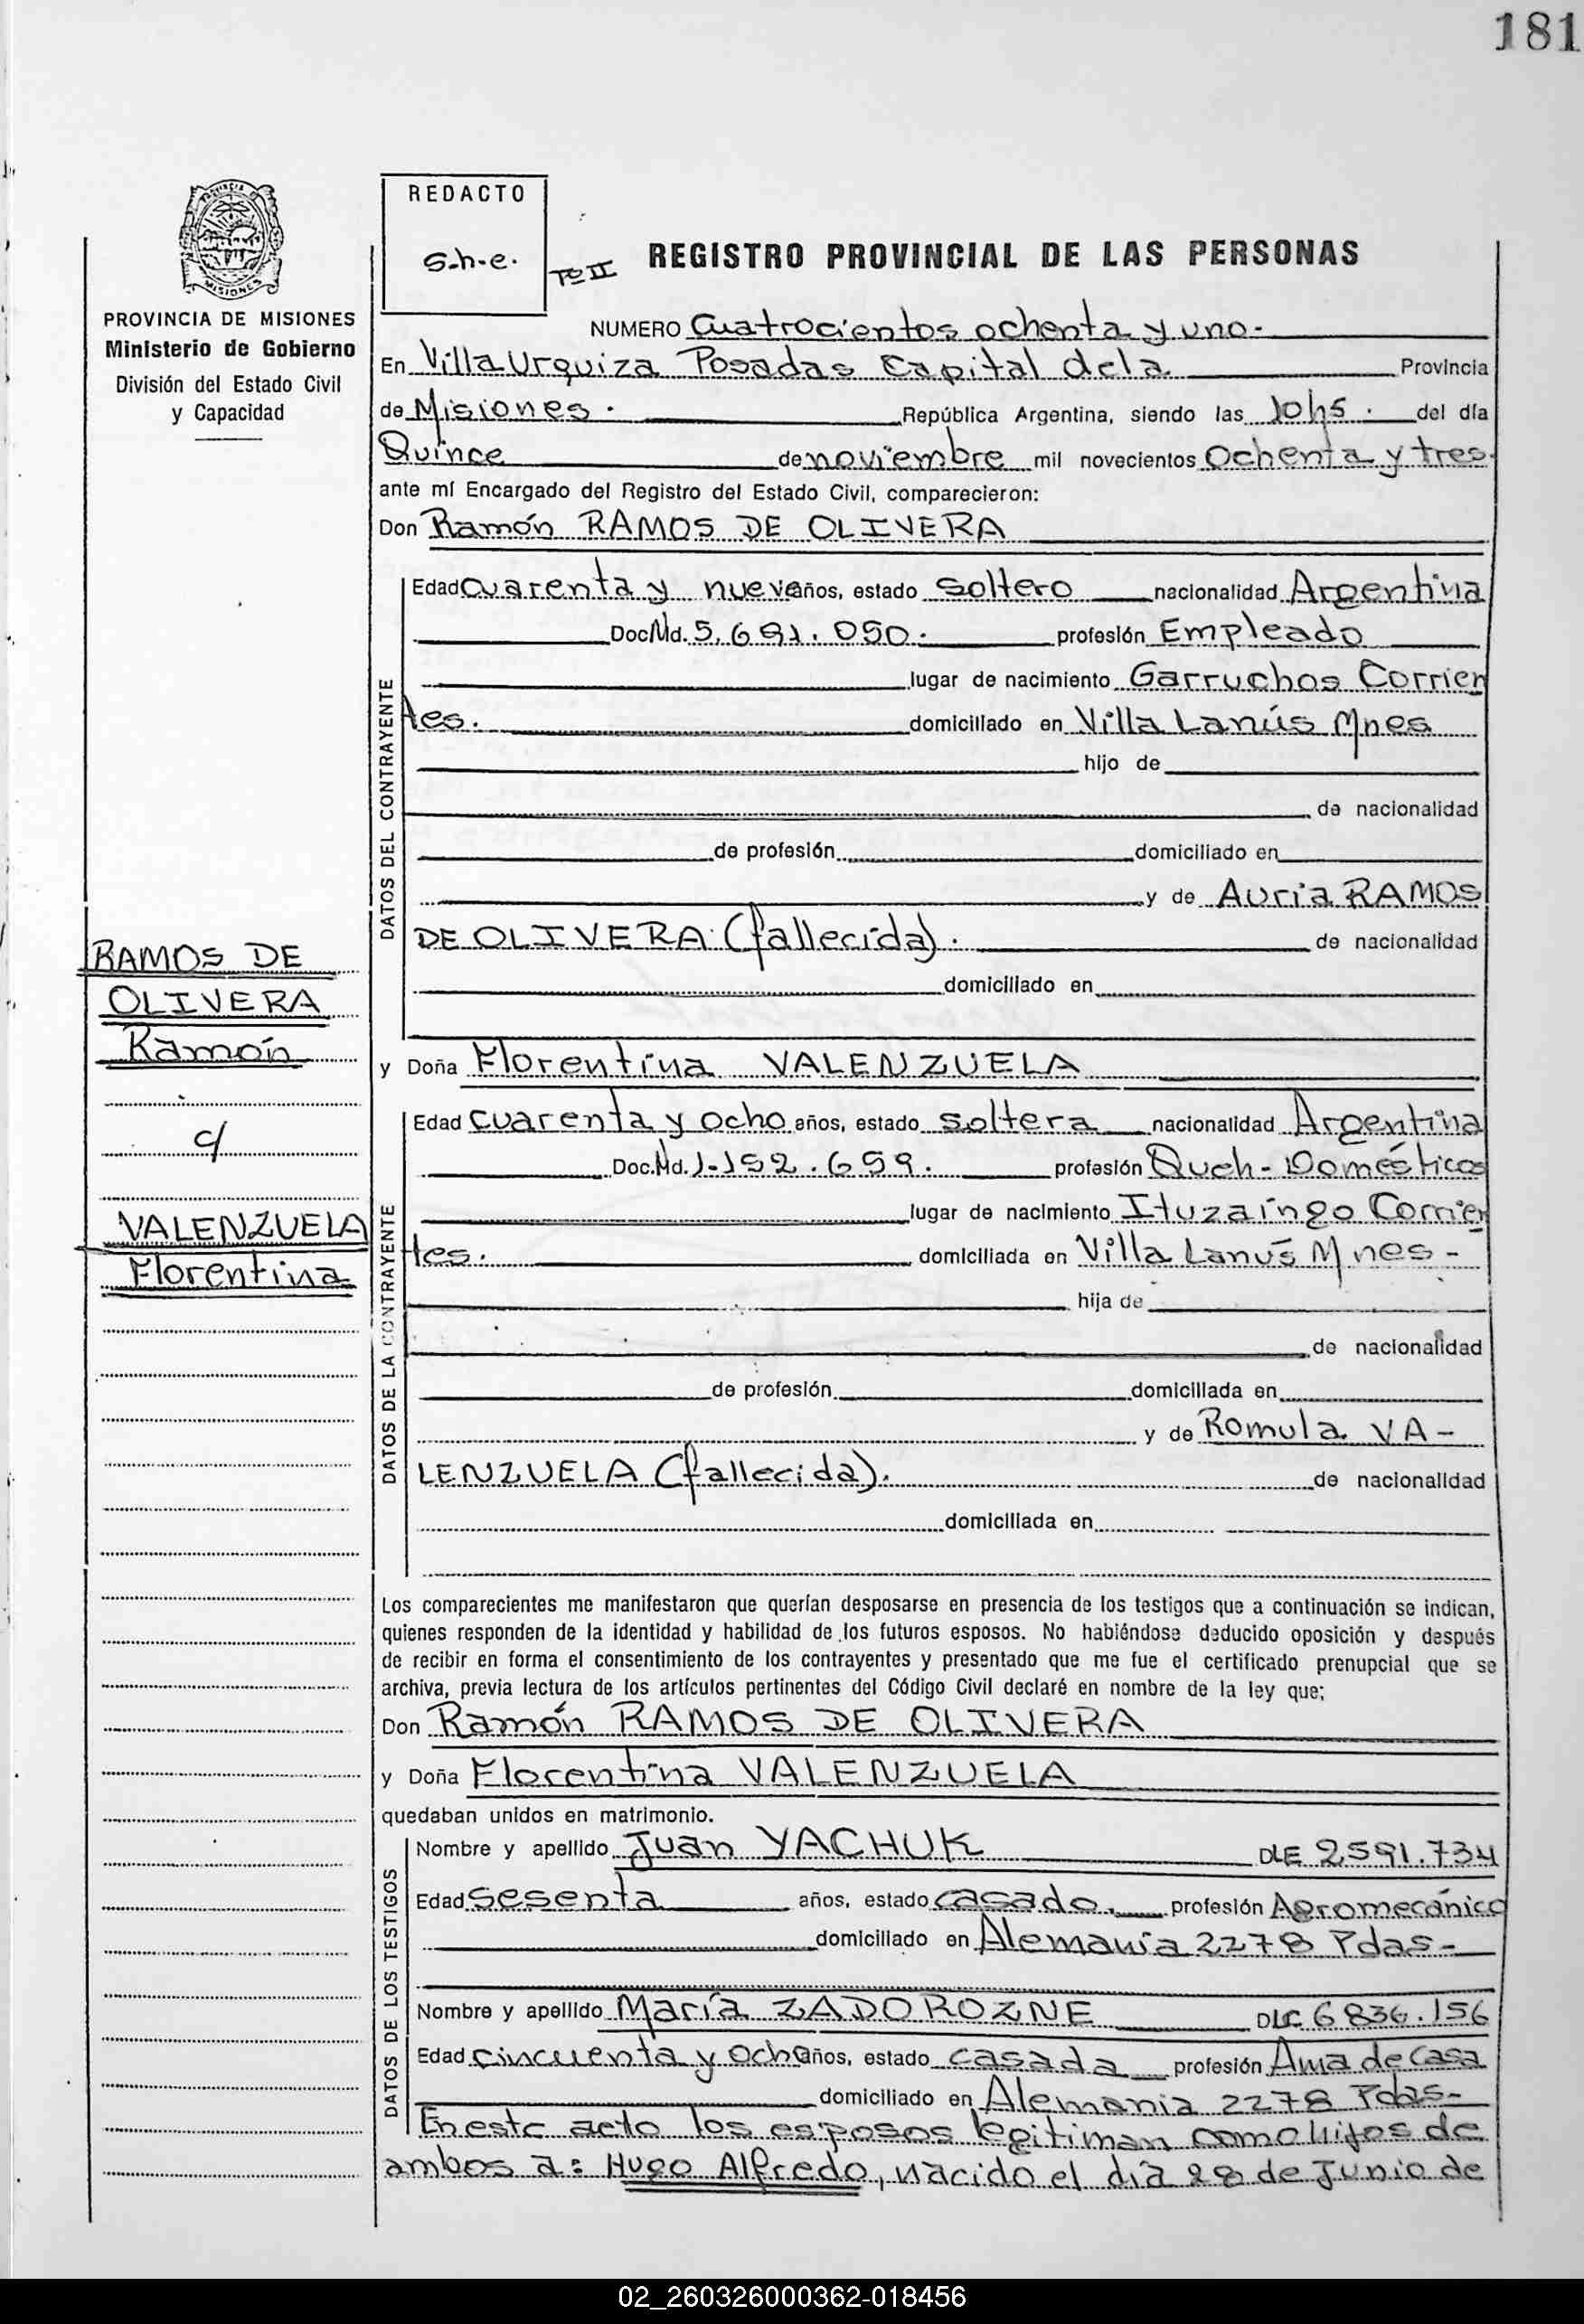 181
REDACTO
S.h.e.
Tº II
REGISTRO PROVINCIAL DE LAS PERSONAS
PROVINCIA DE MISIONES
Ministerio de Gobierno
División del Estado Civil
y Capacidad
NUMERO Cuatrocientos ochenta y uno.-
En Villa Urquiza Posadas Capital dela Provincia
de Misiones. República Argentina, siendo las 10hs. del día
Quince de noviembre mil novecientos Ochenta y tres.
ante mí Encargado del Registro del Estado Civil, comparecieron:
Don Ramón RAMOS DE OLIVERA
DATOS DEL CONTRAYENTE
Edad cuarenta y nueve años, estado soltero nacionalidad Argentina
Doc.Nd. 5.691.050. profesión Empleado
lugar de nacimiento Garruchos Corrien
tes. domiciliado en Villa Lanús Mnes
hijo de
de nacionalidad
de profesión domiciliado en
y de Auria RAMOS
DE OLIVERA (fallecida). de nacionalidad
domiciliado en
RAMOS DE
OLIVERA
Ramón
c/
VALENZUELA
Florentina
y Doña Florentina VALENZUELA
DATOS DE LA CONTRAYENTE
Edad cuarenta y ocho años, estado soltera nacionalidad Argentina
Doc.Nd. 1.152.659. profesión Queh-Domésticos
lugar de nacimiento Ituzaingo Corrien
tes. domiciliada en Villa Lanús Mnes-
hija de
de nacionalidad
de profesión domiciliada en
y de Romula VA-
LENZUELA (fallecida). de nacionalidad
domiciliada en
Los comparecientes me manifestaron que querían desposarse en presencia de los testigos que a continuación se indican,
quienes responden de la identidad y habilidad de los futuros esposos. No habiéndose deducido oposición y después
de recibir en forma el consentimiento de los contrayentes y presentado que me fue el certificado prenupcial que se
archiva, previa lectura de los artículos pertinentes del Código Civil declaré en nombre de la ley que;
Don Ramón RAMOS DE OLIVERA
y Doña Florentina VALENZUELA
quedaban unidos en matrimonio.
DATOS DE LOS TESTIGOS
Nombre y apellido Juan YACHUK DLE 2591.734
Edad Sesenta años, estado casado. profesión Agromecánico
domiciliado en Alemania 2278 Pdas-
Nombre y apellido María ZADOROZNE DLC 6836.156
Edad cincuenta y ocho años, estado casada profesión Ama de Casa
domiciliado en Alemania 2278 Pdas-
En este acto los esposos legitiman como hijos de
ambos a: Hugo Alfredo, nacido el día 28 de Junio de
02_260326000362-018456